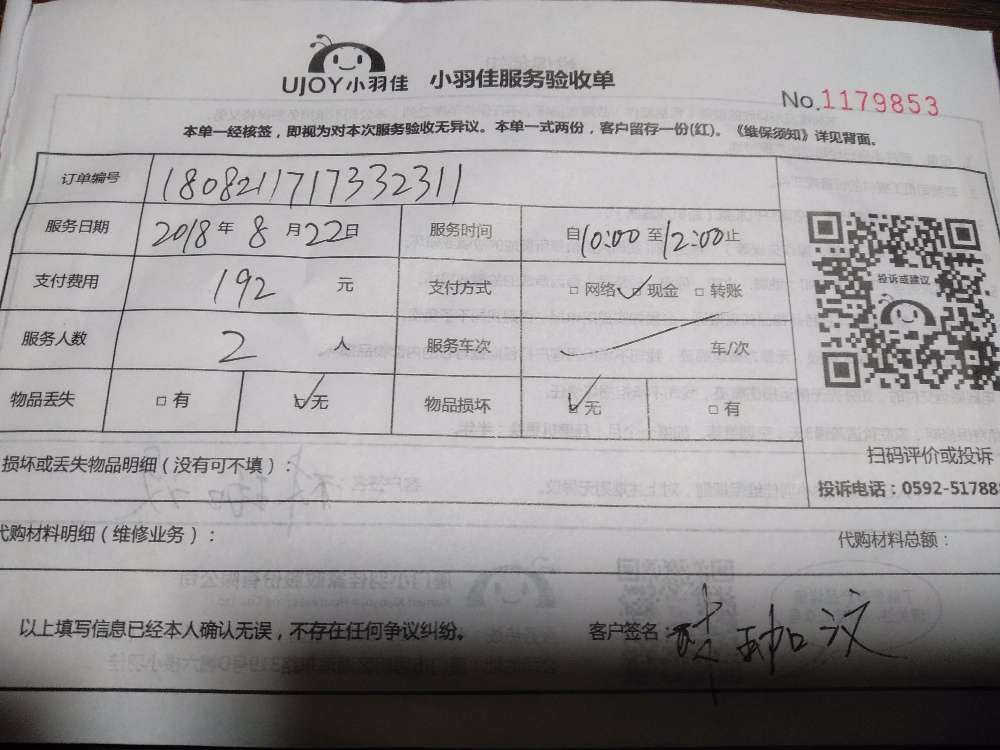 UJOY小羽佳 小羽佳服务验收单
No.1179853
本单一经核签，即视为对本次服务验收无异议。本单一式两份，客户留存一份(红)。《维保须知》详见背面。
订单编号 1808211717332311
服务日期 2018年8月22日 服务时间 自10:00至12:00止
支付费用 192 元 支付方式 □网络 ☑现金 □转账
服务人数 2 人 服务车次 车/次
物品丢失 □有 ☑无 物品损坏 ☑无 □有
投诉或建议
扫码评价或投诉
投诉电话：0592-51788
损坏或丢失物品明细（没有可不填）：
代购材料明细（维修业务）： 代购材料总额：
以上填写信息已经本人确认无误，不存在任何争议纠纷。 客户签名：